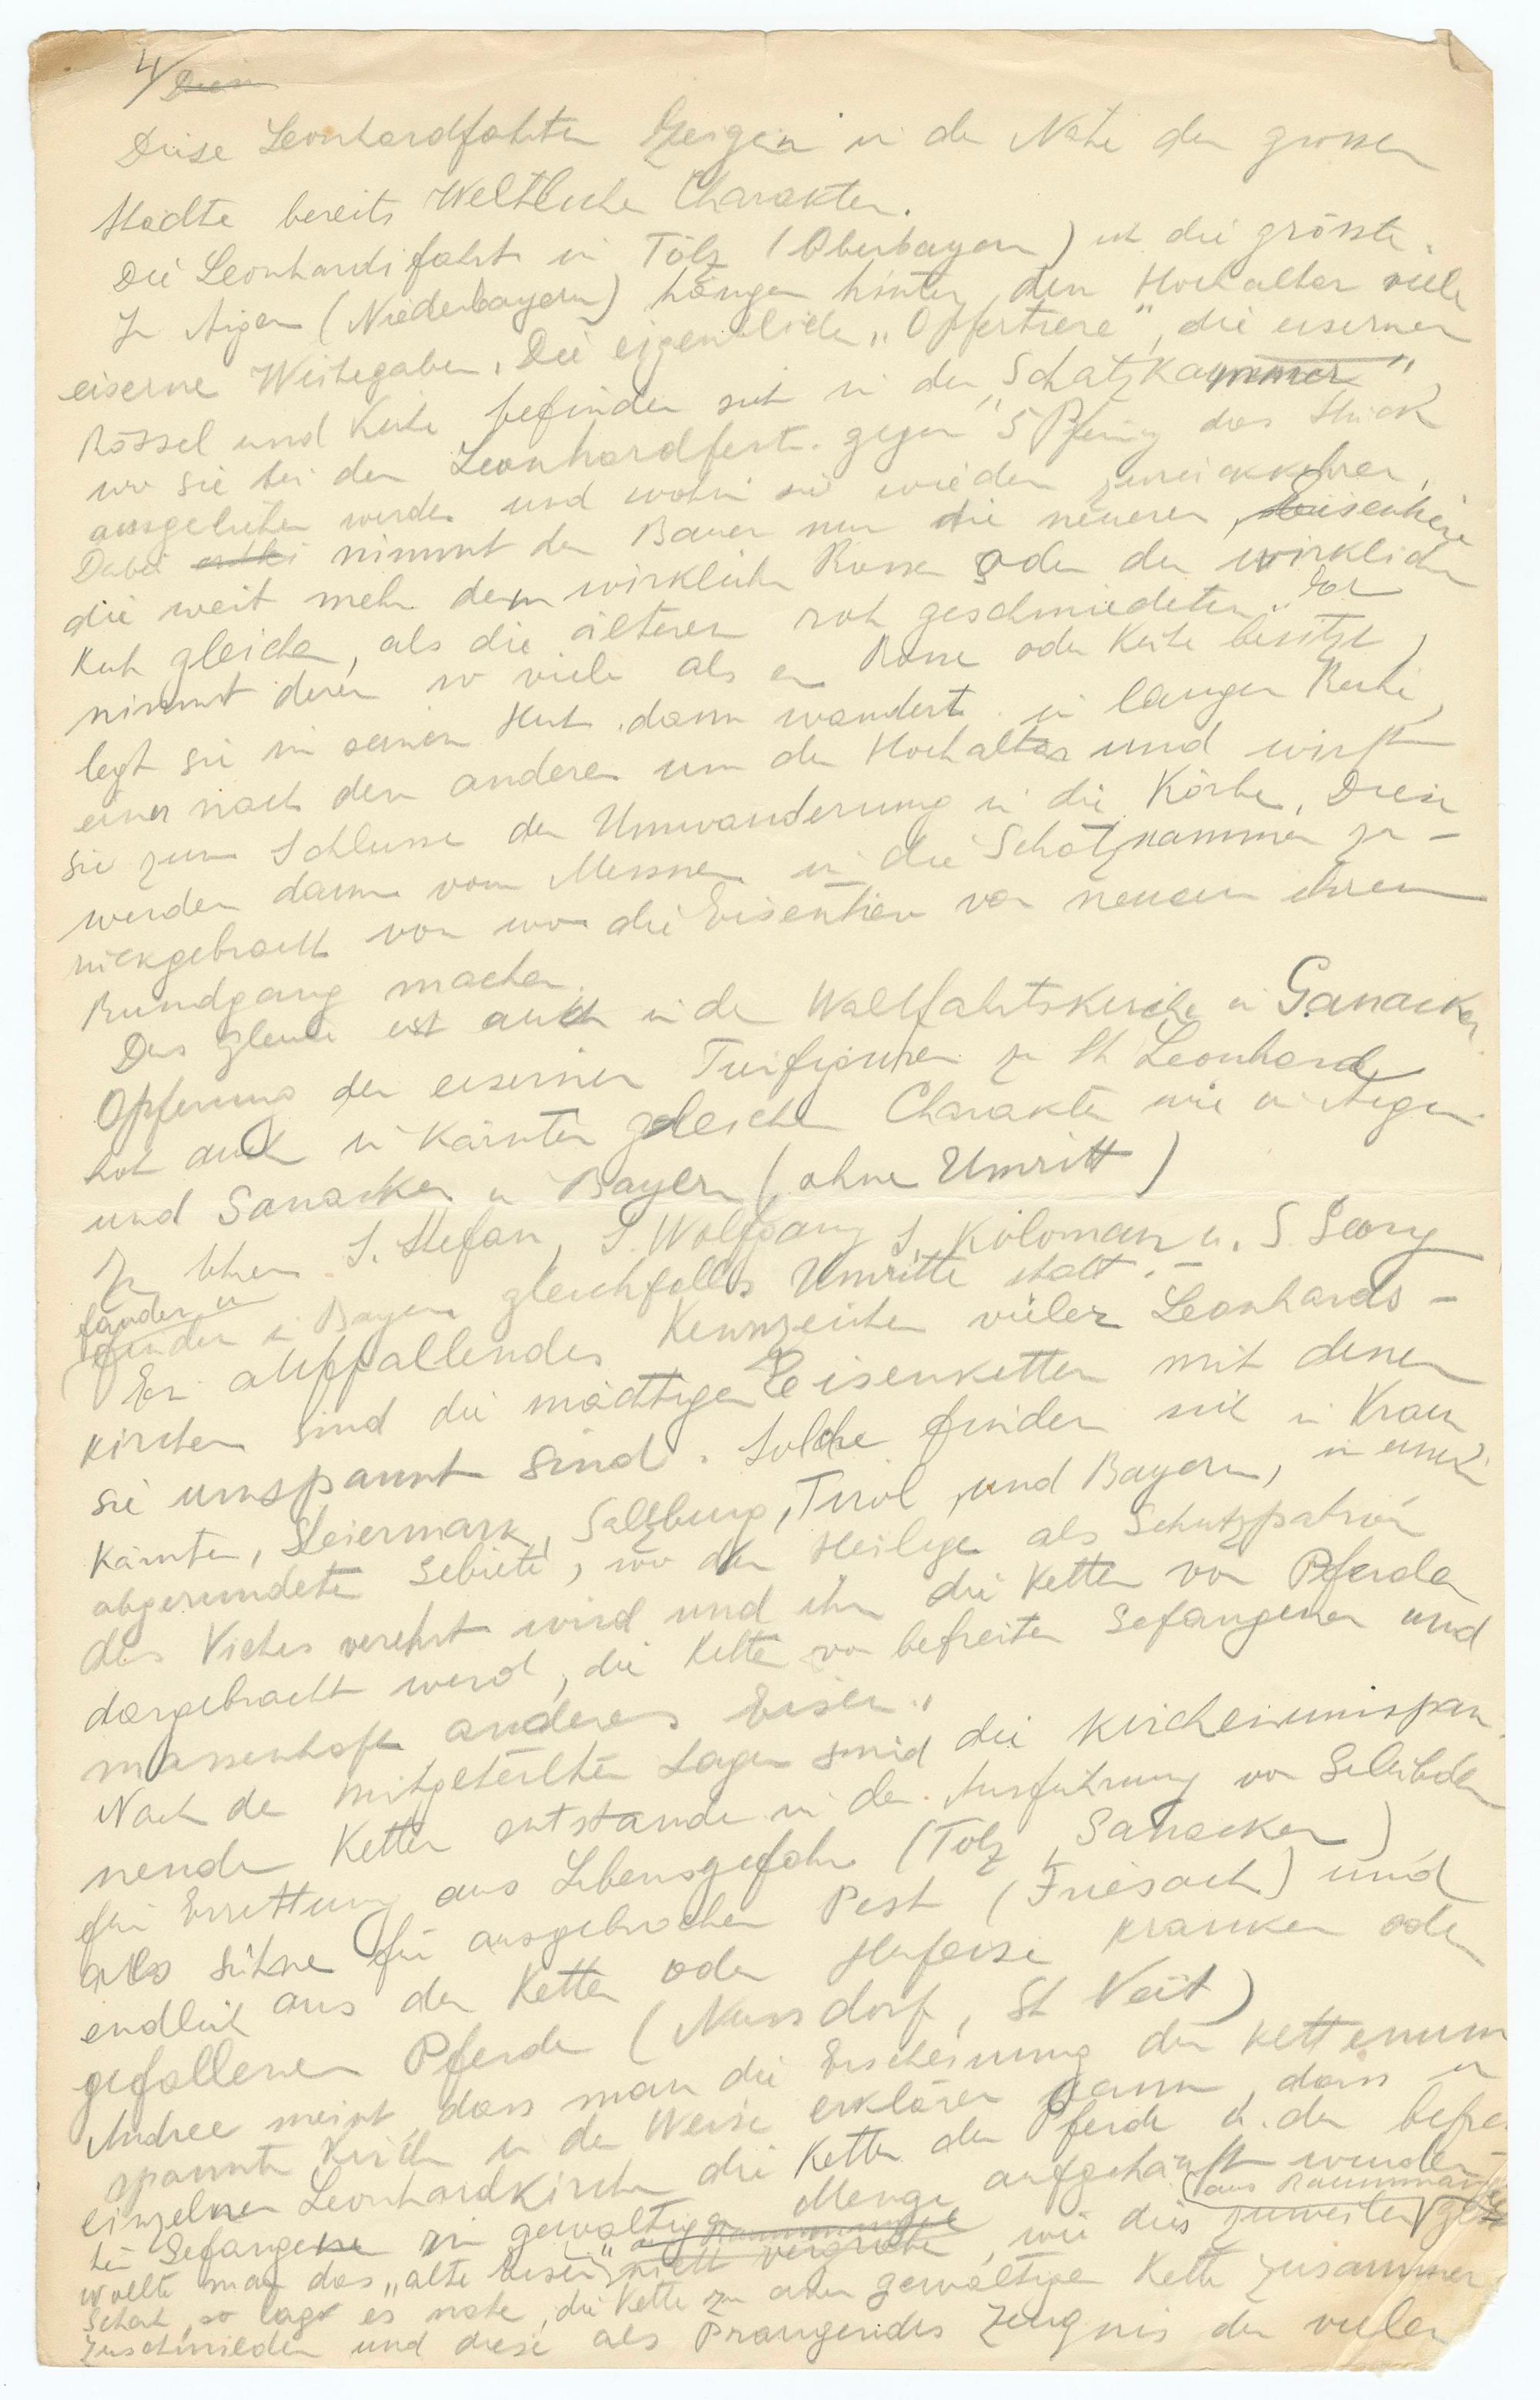 4/ Diese
Diese Leonhardfahrten zeigen in der Nähe der grossen
Städte bereits Weltliche Charakter.
Die Leonhardifahrt in Tölz (Oberbayern) ist die grösste.
In Aigen (Niederbayern) hängen hinter den Hochaltar viele
eiserne Weihegaben. Die eigentliche „Opfertiere", die eisernen
Rössel und Kühe befinden sich in der „Schatzkammer",
wo sie bei der Leonhardfest. gegen 5 Pfennig das Stück
ausgeliehen werden und wohin sie wieder zurückkehren,
Dabei nimmt der Bauer nur die neueren, Eisentiere
die weit mehr dem wirklichen Ross oder der wirklichen
Kuh gleichen, als die älteren roh geschmiedeten. Er
nimmt deren so viele als er Rosse oder Kühe besitzt,
legt sie in seinen Hut. dann wandert in langer Reihe,
einer nach dem anderen um den Hochaltar und wirft
sie zum Schlusse der Umwanderung in die Körbe, Diese
werden dann vom Messner in die Schatzkammer zu-
rückgebracht von wo die Eisentiere von neuem ihren
Rundgang machen.
Das gleiche ist auch in der Wallfahrtskirche in Ganacker
Opferung der eisernen Tierfiguren zu St Leonhard
hat auch in Kärnten gleichen Charakter wie in Aigen
und Ganacker in Bayern (ohne Umritt)
Zu Ehren S. Stefan, S. Wolfgang S. Koloman u. S Georg
fanden u
finden in Bayern gleichfalls Umritte statt.-
Ein auffallendes Kennzeichen vieler Leonhards-
kirchen sind die mächtigen Eisenketten mit denen
sie umspannt sind. Solche finden sich in Krain
Kärnten, Steiermark, Salzburg, Tirol und Bayern, in einem
abgerundeten Gebiete, wo der Heilige als Schutzpatron
des Viehes verehrt wird und ihm die Ketten von Pferden
dargebracht werd, die Kette von befreiten Gefangenen und
massenhaft anderes Eisen."
Nach den mitgeteilten Sagen sind die kirchenumspan-
nenden Ketten entstanden in der Ausführung von Gelübden
für Errettung aus Lebensgefahr (Tölz, Ganacker)
als Sühne für ausgebrochen Pest (Friesach) und
endlich aus den Ketten oder Hufeisen kranken oder
gefallenen Pferde (Nussdorf, St Veit)
Andree meint, dass man die Erscheinung der kettenum
spannten Kirchen in der Weise erklären kann, dass in
einzelnen Leonhardkirchen die Ketten der Pferde u. der befrei
ten Gefangenen in gewaltiger Menge aufgehäuft wurden-
aus Raummangel
Wollte man das „alte Eisen" nicht vergraben, wie dies zuweilen
schah, so lag es nahe, die Kette zu einer gewaltigen Kette zusammen
zuschmieden und diese als prangendes Zeugnis der vielen